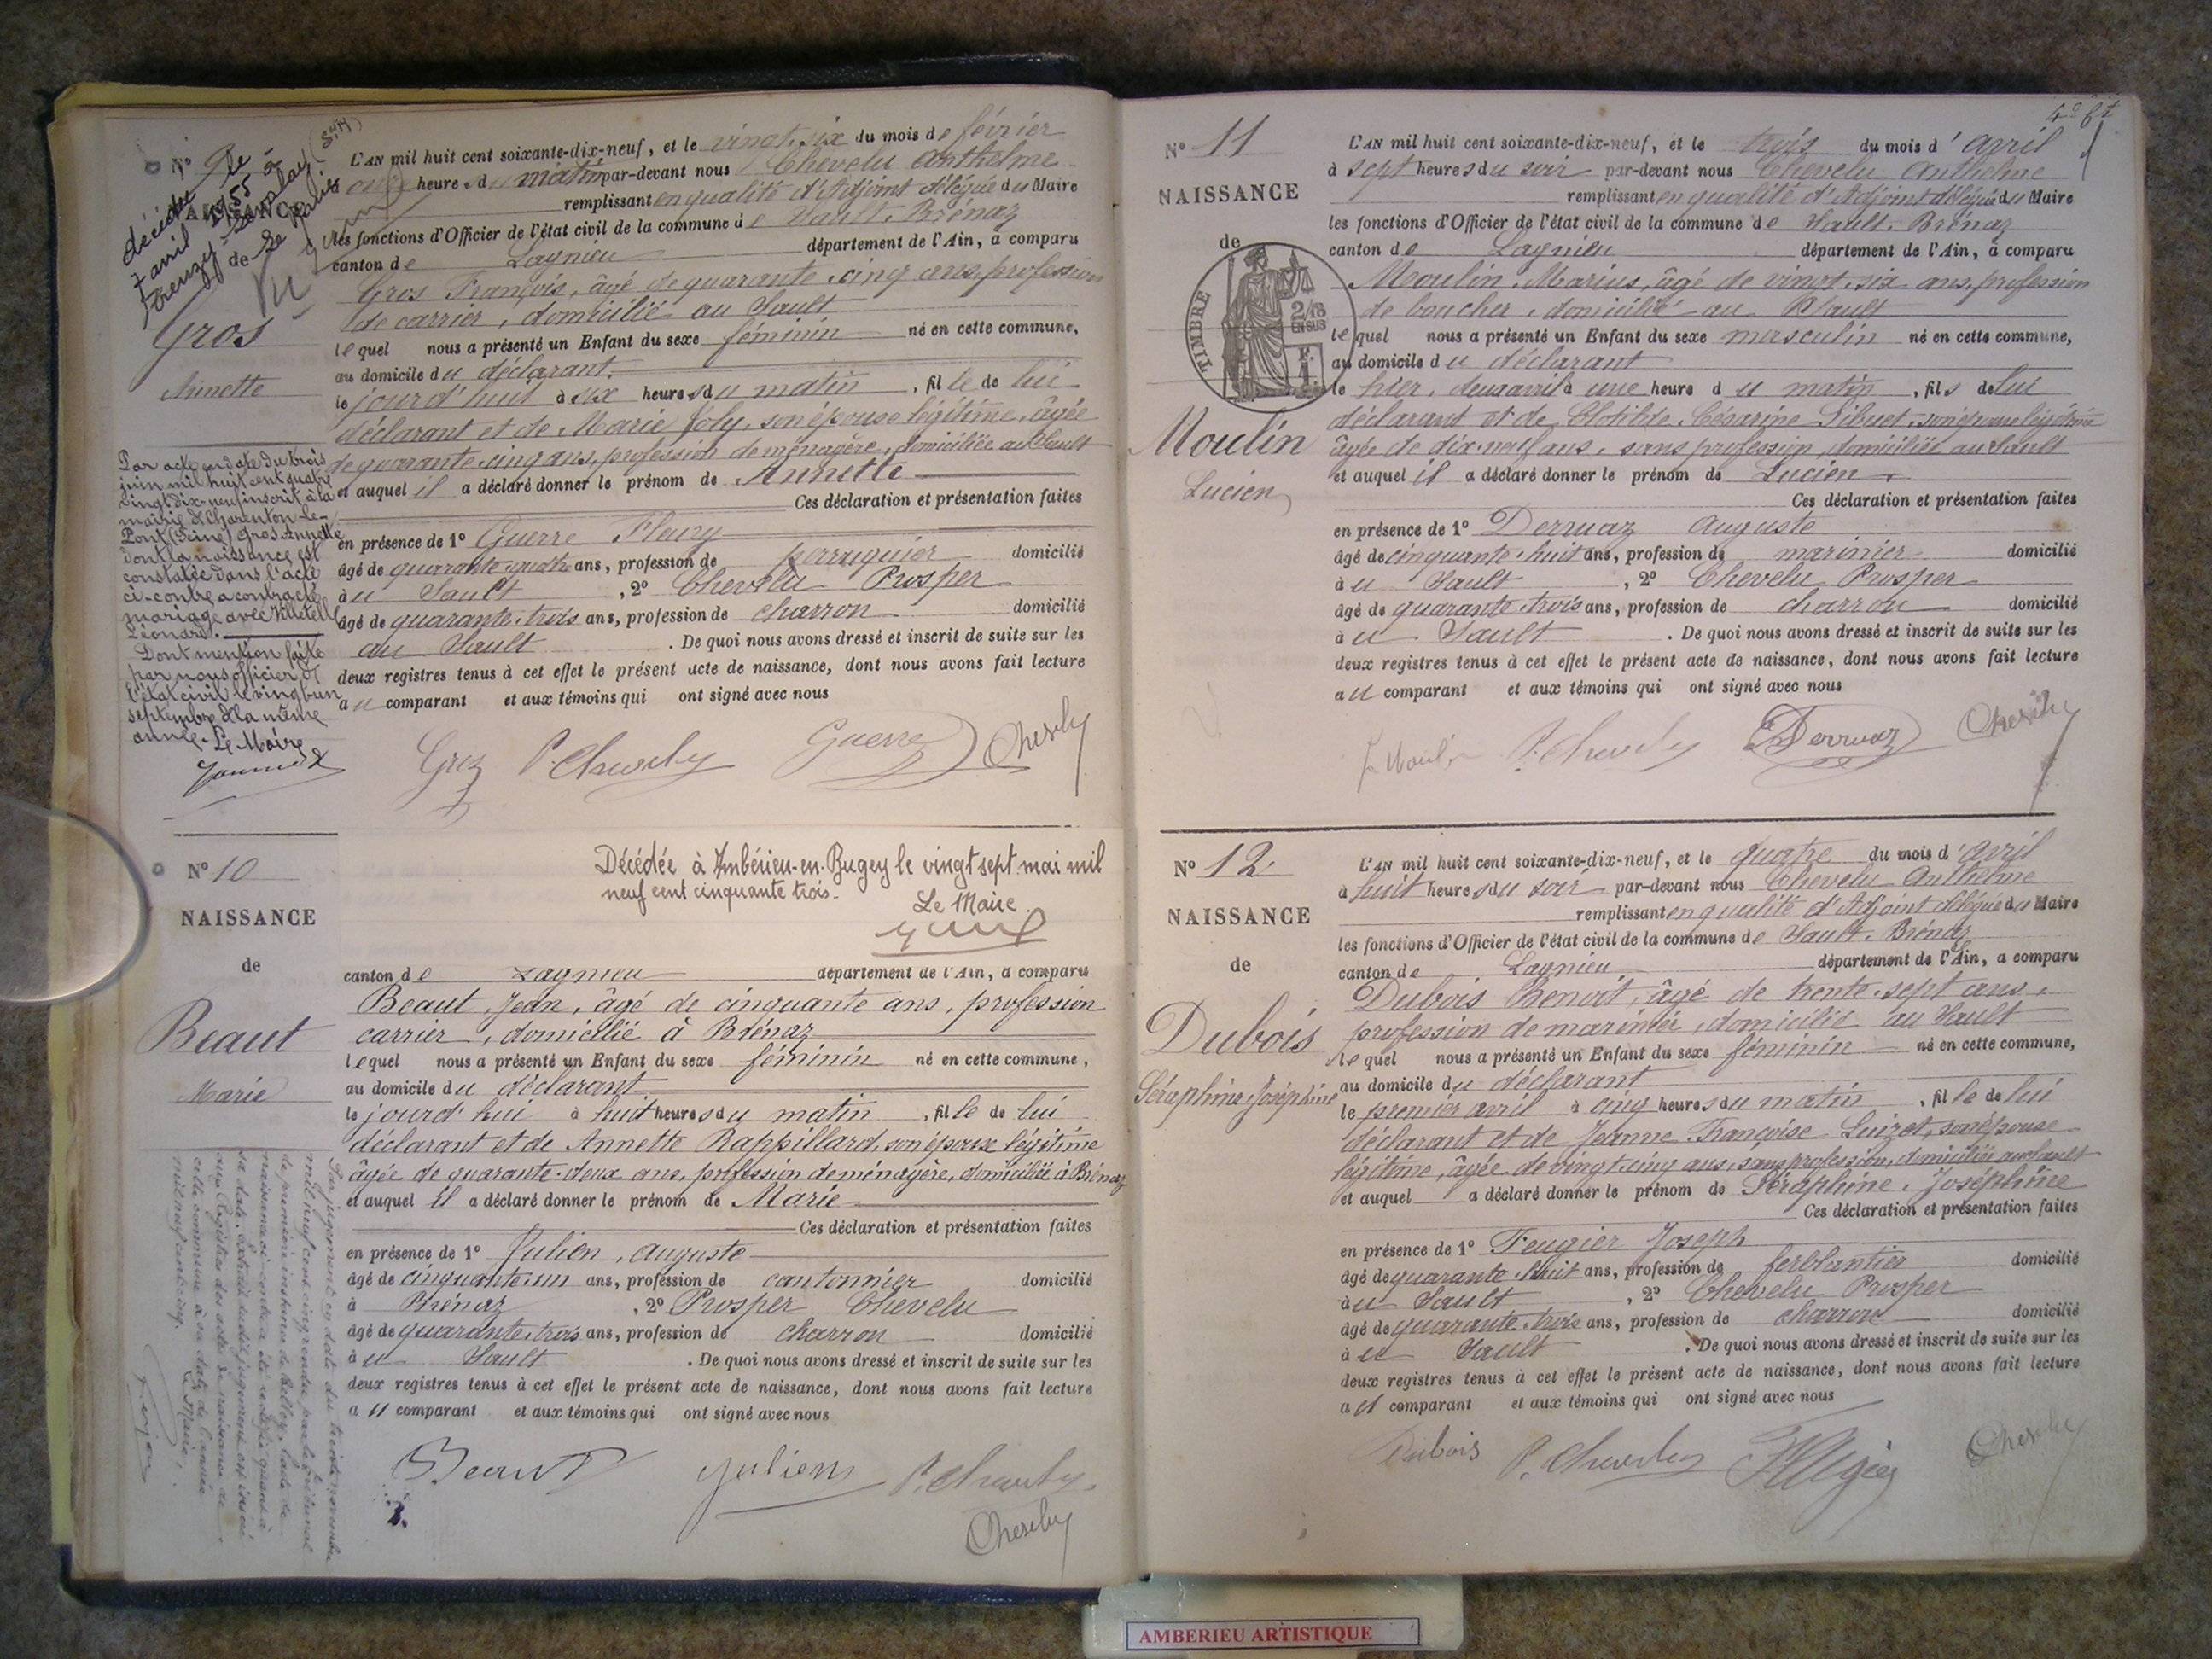 N° 9
NAISSANCE
de
Gros
Annette
décédée le
7 avril 1955 à
L'AN mil huit cent soixante-dix-neuf, et le vingt-six du mois de février
heures du matin par-devant nous Chevelu Anthelme
remplissant en qualité d'Adjoint délégué du Maire
les fonctions d'Officier de l'état civil de la commune de Sault-Brénaz
canton de Lagnieu département de l'Ain, a comparu
Gros François, âgé de quarante-cinq ans, profession
de carrier, domicilié au Sault
lequel nous a présenté un Enfant du sexe féminin né en cette commune,
au domicile du déclarant.
le jourd'hui à six heures du matin, fille de lui
déclarant et de Marie Joly, son épouse légitime, âgée
de quarante-cinq ans, profession de ménagère, domiciliée au Sault
et auquel il a déclaré donner le prénom de Annette
Ces déclaration et présentation faites
en présence de 1° Guerre Fleury
âgé de quarante-quatre ans, profession de perruquier domicilié
à u Sault, 2° Chevelu Prosper
âgé de quarante-trois ans, profession de charron domicilié
au Sault. De quoi nous avons dressé et inscrit de suite sur les
deux registres tenus à cet effet le présent acte de naissance, dont nous avons fait lecture
au comparant et aux témoins qui ont signé avec nous
Gros P. Chevelu Guerre Chevelu
Par acte en date du trois
juin mil huit cent quatre
vingt dix-neuf inscrit à la
mairie de Charenton-le-
Pont (Seine) Gros Annette
dont la naissance est
constatée dans l'acte
ci-contre a contracté
mariage avec Villetelle
Léonard.
Dont mention faite
par nous officier de
l'état civil le vingt un
septembre de la même
année. Le Maire
N° 10
NAISSANCE
de
Beaut
Marie
Décédée à Ambérieu-en-Bugey le vingt sept mai mil
neuf cent cinquante trois.
Le Maire
canton de Lagnieu département de l'Ain, a comparu
Beaut Jean, âgé de cinquante ans, profession
carrier, domicilié à Brénaz
lequel nous a présenté un Enfant du sexe féminin né en cette commune,
au domicile du déclarant
le jourd'hui à huit heures du matin, fille de lui
déclarant et de Annette Rappillard, son épouse légitime
âgée de quarante-deux ans, profession de ménagère, domiciliée à Brénaz
et auquel il a déclaré donner le prénom de Marie
Ces déclaration et présentation faites
en présence de 1° Julien, Auguste
âgé de cinquante-un ans, profession de cantonnier domicilié
à Brénaz, 2° Prosper Chevelu
âgé de quarante-trois ans, profession de charron domicilié
à u Sault. De quoi nous avons dressé et inscrit de suite sur les
deux registres tenus à cet effet le présent acte de naissance, dont nous avons fait lecture
au comparant et aux témoins qui ont signé avec nous
Beaut Julien P. Chevelu
Chevelu
Par jugement en date du trente novembre
mil neuf cent cinq rendu par le tribunal
de première instance de Belley, l'acte de
naissance ci-contre a été rectifié quant à
sa date. Extrait dudit jugement est inscrit
aux Registres des actes de naissance de
cette commune à sa date de l'année
mil neuf cent cinq.
Le Maire,
N° 11
NAISSANCE
de
TIMBRE
2/10
EN SUS
Moulin
Lucien
L'AN mil huit cent soixante-dix-neuf, et le trois du mois d'avril
à sept heures du soir par-devant nous Chevelu Anthelme
remplissant en qualité d'Adjoint délégué du Maire
les fonctions d'Officier de l'état civil de la commune de Sault-Brénaz
canton de Lagnieu département de l'Ain, a comparu
Moulin, Marius, âgé de vingt-six ans, profession
de boucher, domicilié au Sault
lequel nous a présenté un Enfant du sexe masculin né en cette commune,
au domicile du déclarant
le hier, deux avril à une heure du matin, fils de lui
déclarant et de Clotilde Césarine son épouse légitime
âgée de dix-neuf ans, sans profession, domiciliée au Sault
et auquel il a déclaré donner le prénom de Lucien
Ces déclaration et présentation faites
en présence de 1° Derruaz Auguste
âgé de cinquante-huit ans, profession de marinier domicilié
à u Sault, 2° Chevelu Prosper
âgé de quarante-trois ans, profession de charron domicilié
à u Sault. De quoi nous avons dressé et inscrit de suite sur les
deux registres tenus à cet effet le présent acte de naissance, dont nous avons fait lecture
au comparant et aux témoins qui ont signé avec nous
Moulin P. Chevelu Derruaz Chevelu
N° 12
NAISSANCE
de
Dubois
Séraphine Joséphine
L'AN mil huit cent soixante-dix-neuf, et le quatre du mois d'avril
à huit heures du soir par-devant nous Chevelu Anthelme
remplissant en qualité d'Adjoint délégué du Maire
les fonctions d'Officier de l'état civil de la commune de Sault-Brénaz
canton de Lagnieu département de l'Ain, a comparu
Dubois Benoit, âgé de trente-sept ans,
profession de marinier, domicilié au Sault
lequel nous a présenté un Enfant du sexe féminin né en cette commune,
au domicile du déclarant
le premier avril à cinq heures du matin, fille de lui
déclarant et de Jeanne Françoise Luizet, son épouse
légitime, âgée de vingt-cinq ans, sans profession, domiciliée au Sault
et auquel a déclaré donner le prénom de Séraphine, Joséphine
Ces déclaration et présentation faites
en présence de 1° Feugier Joseph
âgé de quarante-huit ans, profession de ferblantier domicilié
à u Sault, 2° Chevelu Prosper
âgé de quarante-trois ans, profession de charron domicilié
à u Sault. De quoi nous avons dressé et inscrit de suite sur les
deux registres tenus à cet effet le présent acte de naissance, dont nous avons fait lecture
au comparant et aux témoins qui ont signé avec nous
Dubois P. Chevelu Feugier Chevelu
AMBERIEU ARTISTIQUE